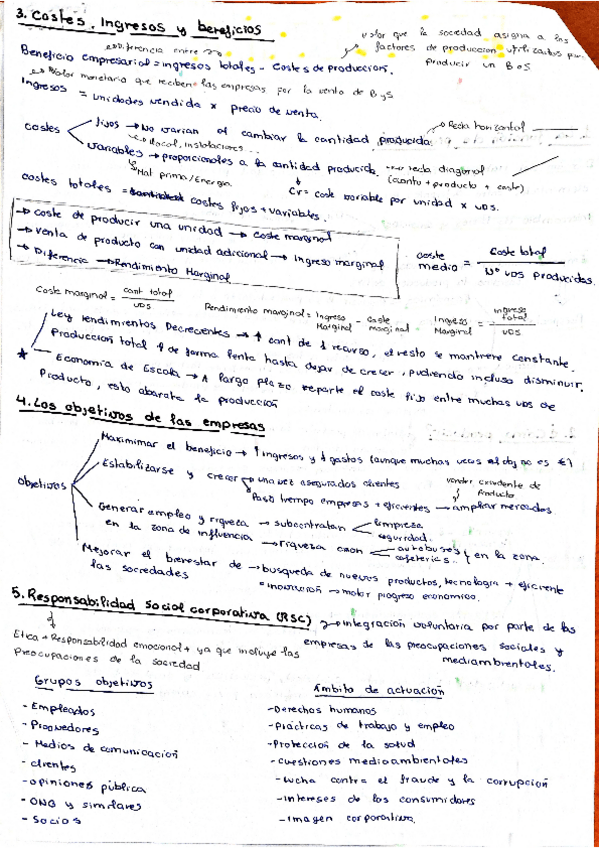 3. Costes, Ingresos y beneficios
valor que la sociedad asigna a los
factores de producción utilizados para
producir un B o S
Diferencia entre
Beneficio empresarial = ingresos totales - costes de producción.
Valor monetario que reciben las empresas por la venta de B y S
Ingresos = unidades vendida x precio de venta.
costes
fijos → No varian al cambiar la cantidad producida → Recta horizontal
local, instalaciones...
variables → proporcionales a la cantidad producida → recta diagonal
Mat prima/Energía (cuanto + producto + coste)
Cv = coste variable por unidad x uds.
costes totales = costes fijos + variables.
→ coste de producir una unidad → coste marginal
→ Venta de producto con unidad adicional → Ingreso marginal
→ Diferencia → Rendimiento Marginal
coste medio = Coste total / Nº uds producidas.
Coste marginal = cant total / uds
Rendimiento marginal = Ingreso Marginal - Coste marginal
Ingreso Marginal = ingreso total / uds
Ley rendimientos Decrecientes → ↑ cant de 1 recurso, el resto se mantiene constante.
Producción total ↑ de forma lenta hasta dejar de crecer, pudiendo incluso disminuir.
★ Economía de Escala → A largo plazo reparte el coste fijo entre muchas uds de
Producto, esto abarata la producción
4. Los objetivos de las empresas
Objetivos
Maximimar el beneficio → ↑ ingresos y ↓ gastos (aunque muchas veces el obj no es €)
Estabilizarse y crecer → una vez asegurados clientes
vender excedente de Producto
Paso tiempo empresas + eficientes → ampliar mercados
Generar empleo y riqueza en la zona de influencia
→ subcontratan limpieza
seguridad.
→ riqueza crean autobuses
cafeterias.. y en la zona.
Mejorar el bienestar de las sociedades → busqueda de nuevos productos, tecnologia + eficiente
= Innovación → motor progreso economico.
5. Responsabilidad Social corporativa (RSC) → integración voluntaria por parte de las
empresas de las preocupaciones sociales y
mediambrentales.
Etica + Responsabilidad emocional + ya que incluye las
preocupaciones de la sociedad
Grupos objetivos
- Empleados
- Proovedores
- Medios de comunicación
- clientes
- opiniones pública
- ONG y similares
- Socios
Ámbito de actuación
- Derechos humanos
- Prácticas de trabajo y empleo
- Protección de la salud
- cuestiones medioambientales
- Lucha contra el fraude y la corrupción
- Intereses de los consumidores
- Imagen corporativa.